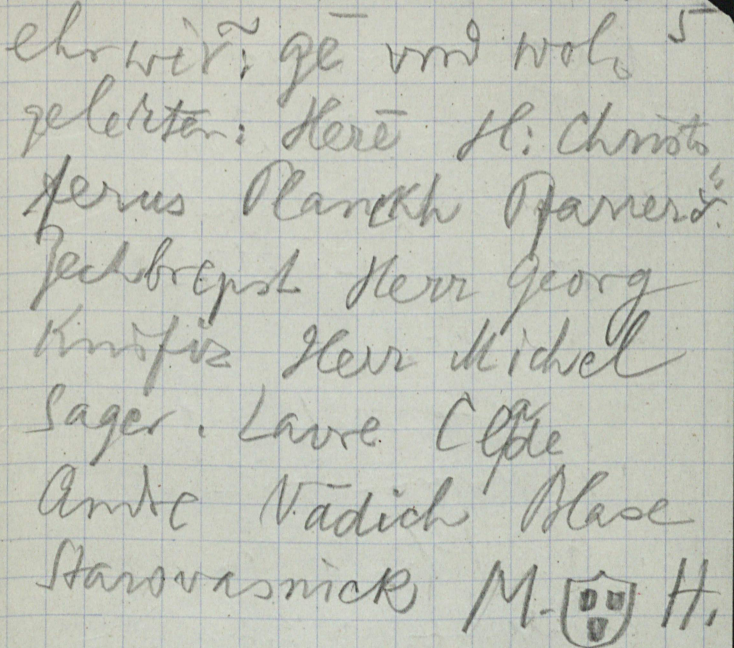 ehrwir̃: gē vnd wol 5
gelerten: Herē H: Christo
ferus Planckh Pfarrer d.
Zechbrepst Herr Georg
Herr Michel
Sager. Laure
Andre Nādich Blase
Starovasnick M. H.